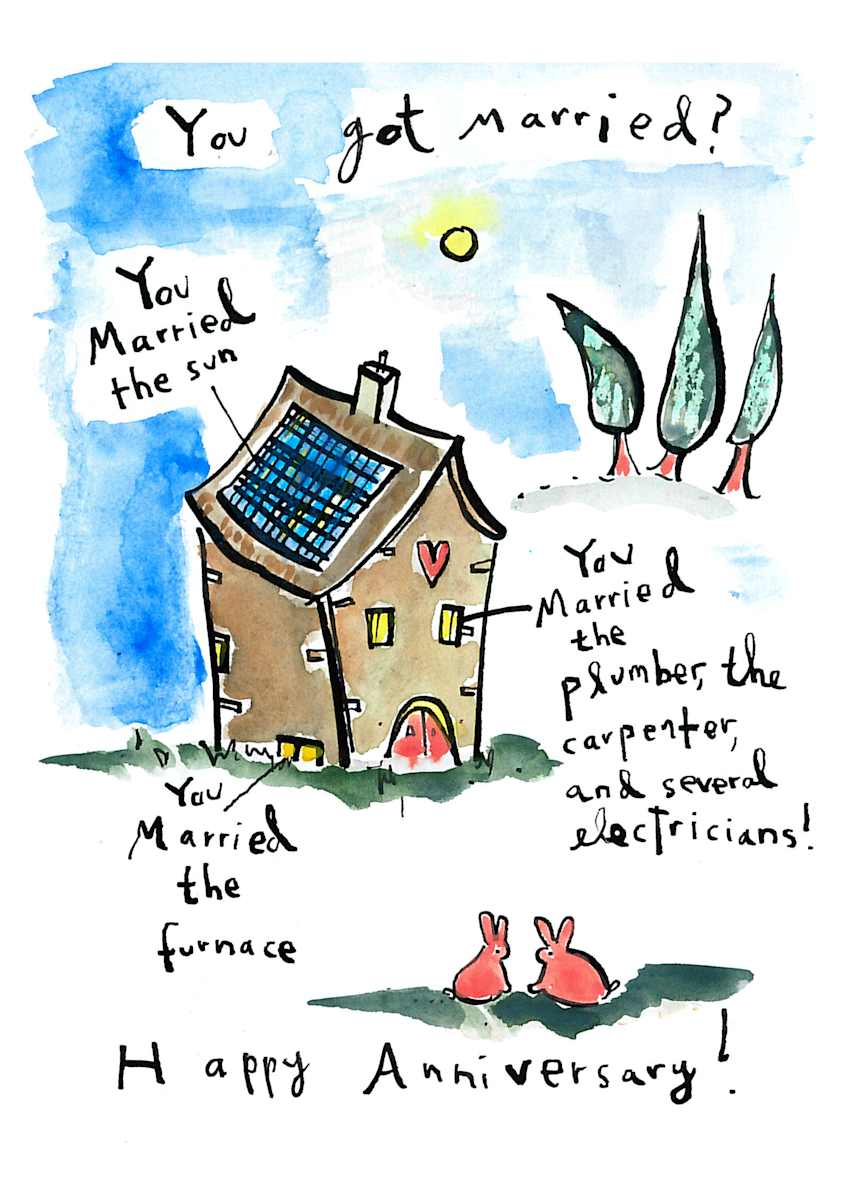 You got married?
You
Married
the sun
You
Married
the
plumber, the
carpenter,
and several
electricians!
You
Married
the
furnace
Happy Anniversary!